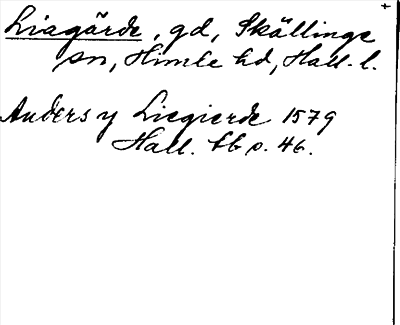 Liagärde, gd, Skällinge
sn, Himle hd, Hall. l.
Anders y Liegierde 1579
Hall. tb s. 46.